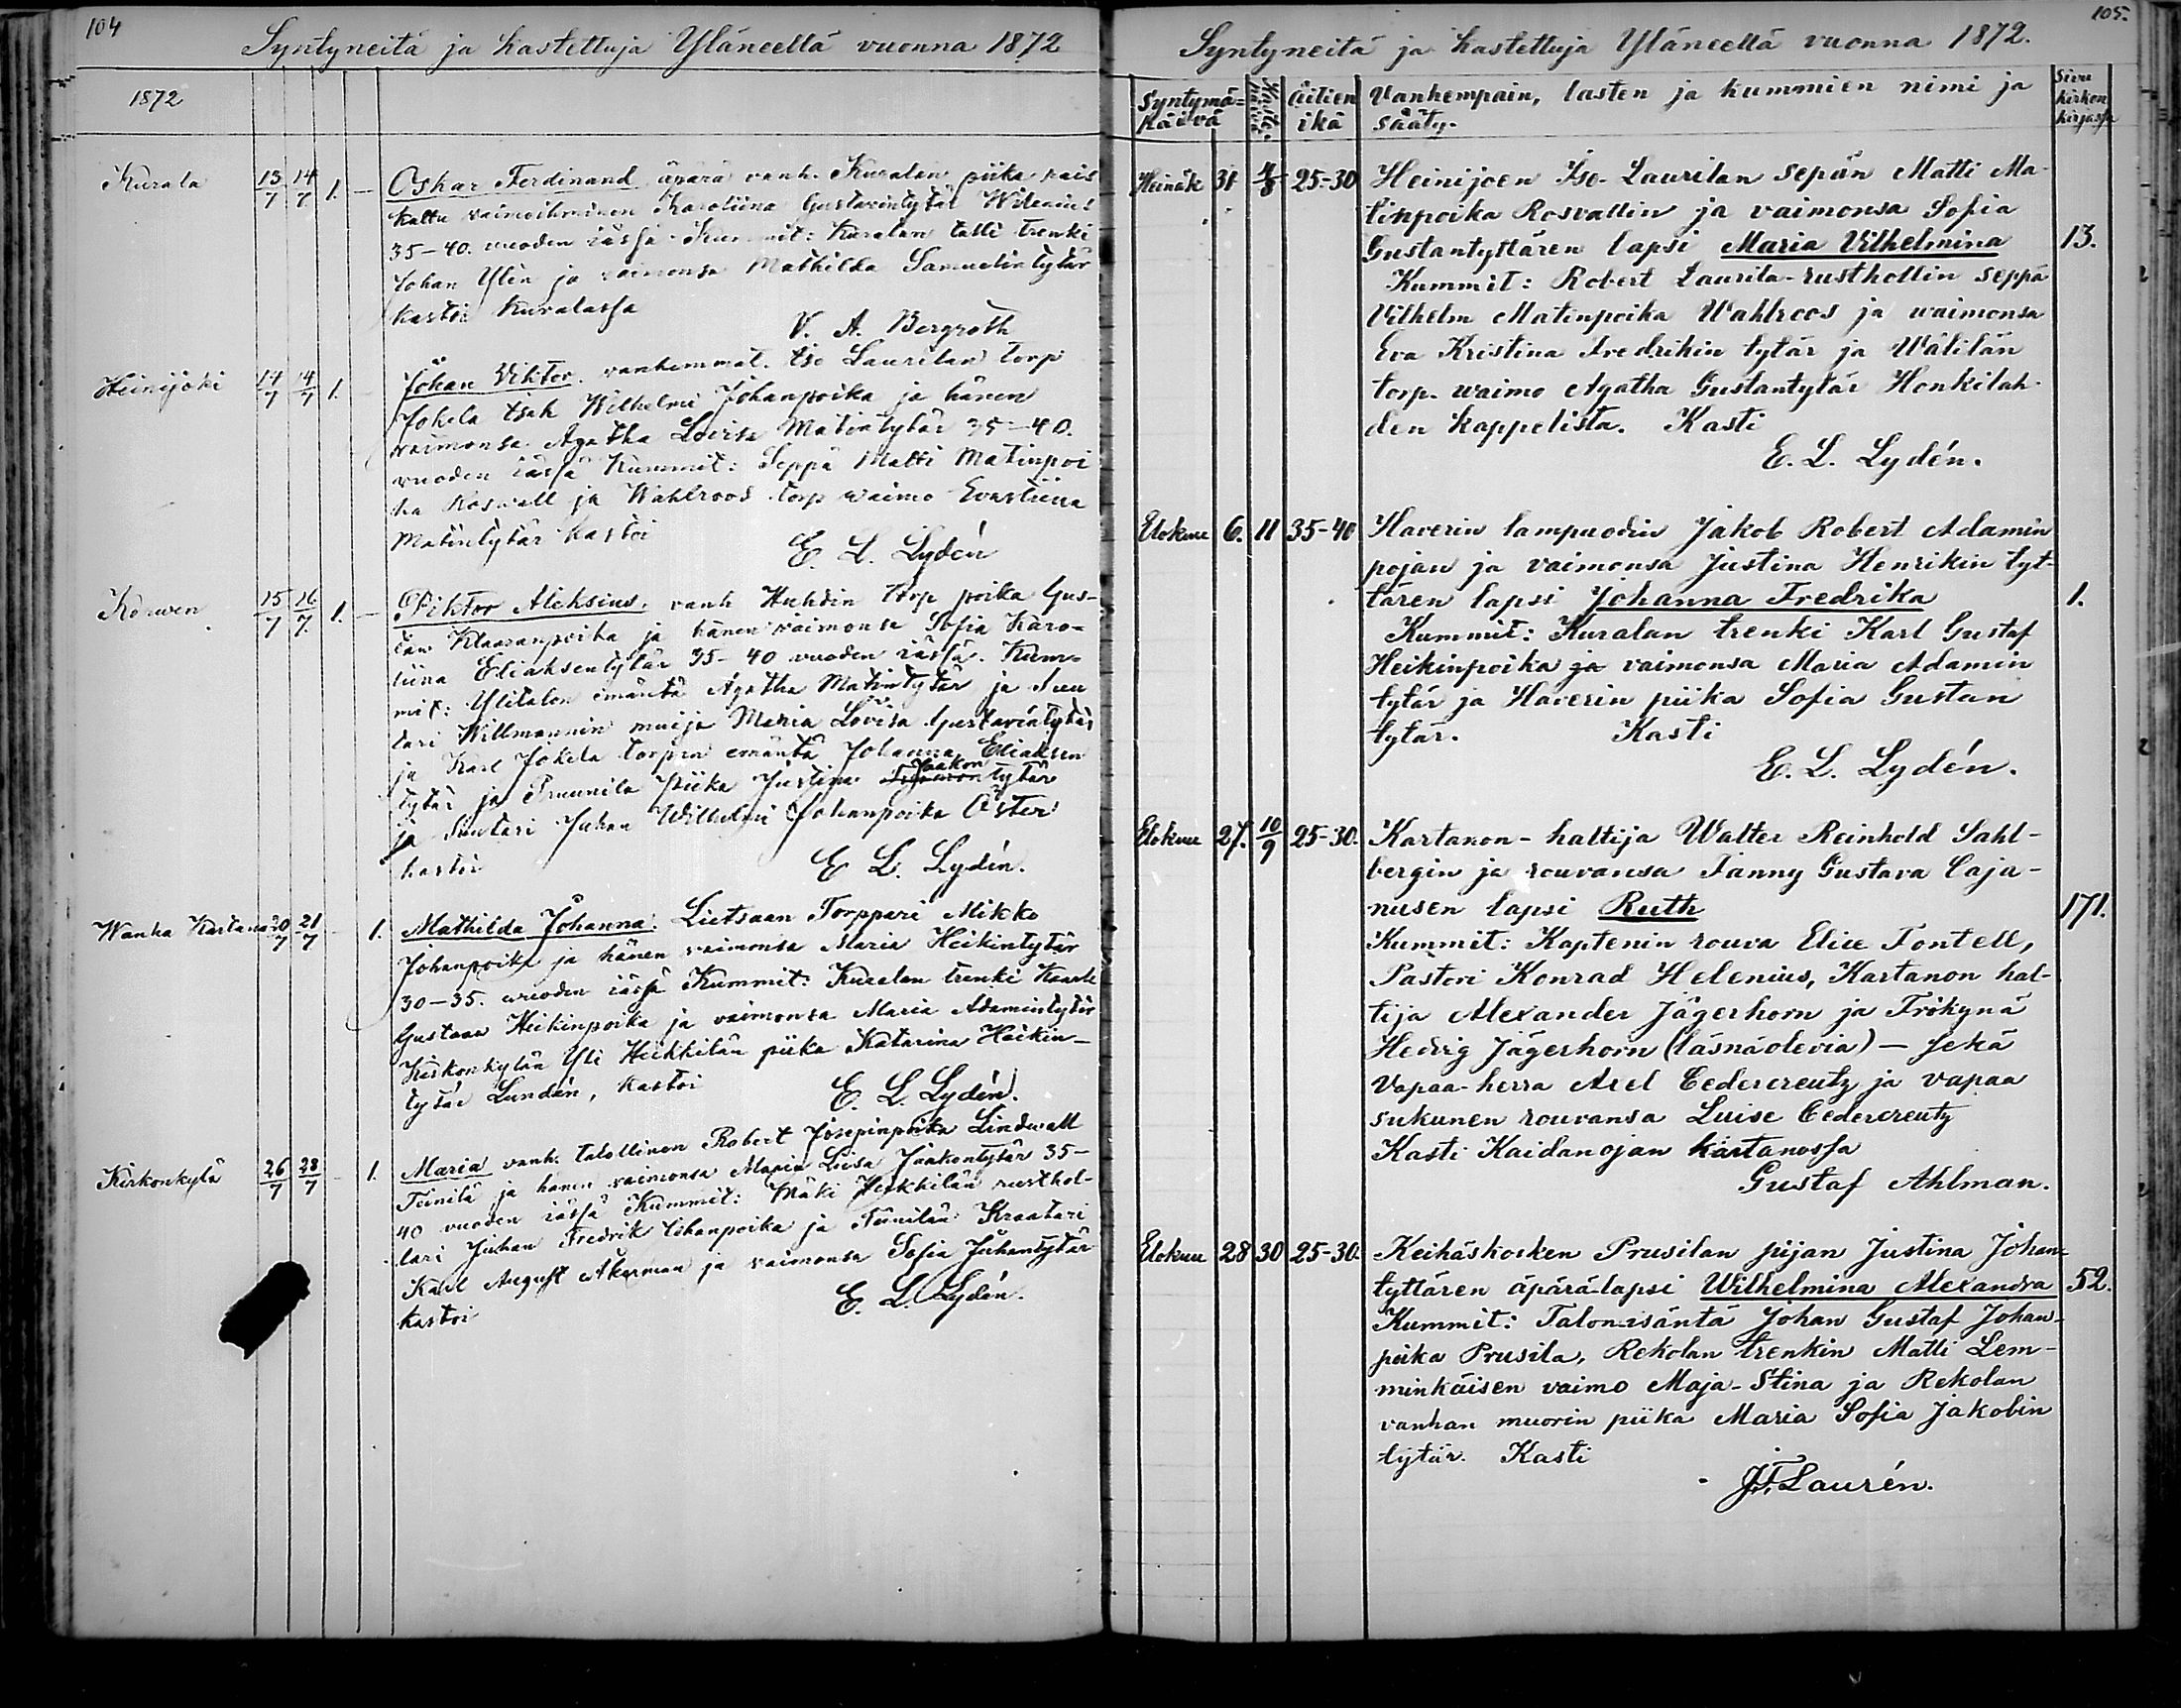 104
Syntyneitä ja kastettuja Yläneellä vuonna 1872
1872
Kurala 13/7 14/7 1. — Oskar Ferdinand äpärä vanh. Kuralan piika rais
kattu vaimoihminen Karoliina Gustavintytär Widenius
35–40. vuoden iässä Kummit: Kuralan talli trenki
Johan Ylin ja vaimonsa Mathilda Samuelintytär
kastoi Kuralassa
V. A. Bergroth
Heinijoki 14/7 14/7 1. Johan Viktor. vanhemmat. Iso Laurilan torp
Jokela Isak Wilhelmi Johanpoika ja hänen
vaimonsa Agatha Lovisa Matintytär 35–40.
vuoden iässä Kummit: Seppä Matti Matinpoi
ka Roswall ja Wahlroos torp waimo Evastiina
Matintytär kastoi
E. L. Lydén
Korwen 15/7 16/7 1. — Viktor Aleksius, vanh Huhdin torp poika Gus-
taw Klaaranpoika ja hänen vaimonsa Sofia Karo-
liina Eliaksentytär 35–40 vuoden iässä. Kum-
mit: Ylitalon emäntä Agatha Matintytär ja Suu
tari Willmannin muija Maria Lovisa Gustavintytär
ja Karl Jokela torpen emäntä Johanna Eliaksen
tytär ja Pruunila Piika Justina Jaakon tytär
ja Suutari Juhan Wilhelmi Johanpoika Öster
kastoi
E. L. Lydén.
Wanha Kartano 20/7 21/7 — 1. Mathilda Johanna. Lietsaan Torppari Mikko
Johanpoika ja hänen vaimonsa Maria Heikintytär
30–35. wuoden iässä Kummit: Kuralan trenki Kaarle
Gustaav Heikinpoika ja vaimonsa Maria Adamintytär
Kirkonkylän Yli Heikkilän piika Katarina Heikin-
tytär Lundén, kastoi
E. L. Lydén.
Kirkonkylä 26/7 28/7 — 1. Maria vanh. talollinen Robert Josepinpoika Lindwall
Teinilä ja hänen vaimonsa Maria Liisa Jaakontytär 35–
40 vuoden iässä Kummit: Mäki Heikkilän rusthol-
lari Juhan Fredrik Johanpoika ja Teinilän Kraatari
Karl August Åkerman ja vaimonsa Sofia Juhantytär
kastoi
E. L. Lydén.
105.
Syntyneitä ja kastettuja Yläneellä vuonna 1872.
Syntymä=
päivä Kaste-
päivä äitien
ikä Vanhempain, lasten ja kummien nimi ja
sääty. Sivu
kirkon
kirjassa
Heinäk 31 4/8 25-30 Heinijoen Iso-Laurilan sepän Matti Ma-
tinpoika Rosvallin ja vaimonsa Sofia
Gustantyttären lapsi Maria Vilhelmina 13.
Kummit: Robert Laurila-rusthollin seppä
Vilhelm Matinpoika Wahlroos ja waimonsa
Eva Kristina Fredrikin tytär ja Wälilän
torp. waimo Agatha Gustantytär Honkilah-
den kappelista. Kasti
E. L. Lydén.
Elokuu 6. 11 35-40 Haverin lampuodin Jakob Robert Adamin
pojan ja vaimonsa Justina Henrikin tyt-
tären lapsi Johanna Fredrika 1.
Kummit: Kuralan trenki Karl Gustaf
Heikinpoika ja vaimonsa Maria Adamin
tytär ja Haverin piika Sofia Gustan
tytär. Kasti
E. L. Lydén.
Elokuu 27. 10/9 25-30. Kartanon-haltija Walter Reinhold Sahl-
bergin ja rouvansa Fanny Gustava Caja-
nusen lapsi Ruth 171.
Kummit: Kaptenin rouva Elise Fontell,
Pastori Konrad Helenius, Kartanon hal-
tija Alexander Jägerhorn ja Frökynä
Hedvig Jägerhorn (läsnäolevia) — sekä
Vapaa-herra Axel Cedercreutz ja vapaa
sukunen rouvansa Luise Cedercreutz
Kasti Kaidanojan kartanossa
Gustaf Ahlman.
Elokuu 28 30 25-30. Keihäskosken Prusilan pijan Justina Johan-
tyttären äpärä-lapsi Wilhelmina Alexandra 52.
Kummit: Talonisäntä Johan Gustaf Johan-
poika Prusila, Rekolan trenkin Matti Lem-
minkäisen vaimo Maja-Stina ja Rekolan
vanhan muorin piika Maria Sofia Jakobin
tytär. Kasti
J. F. Laurén.